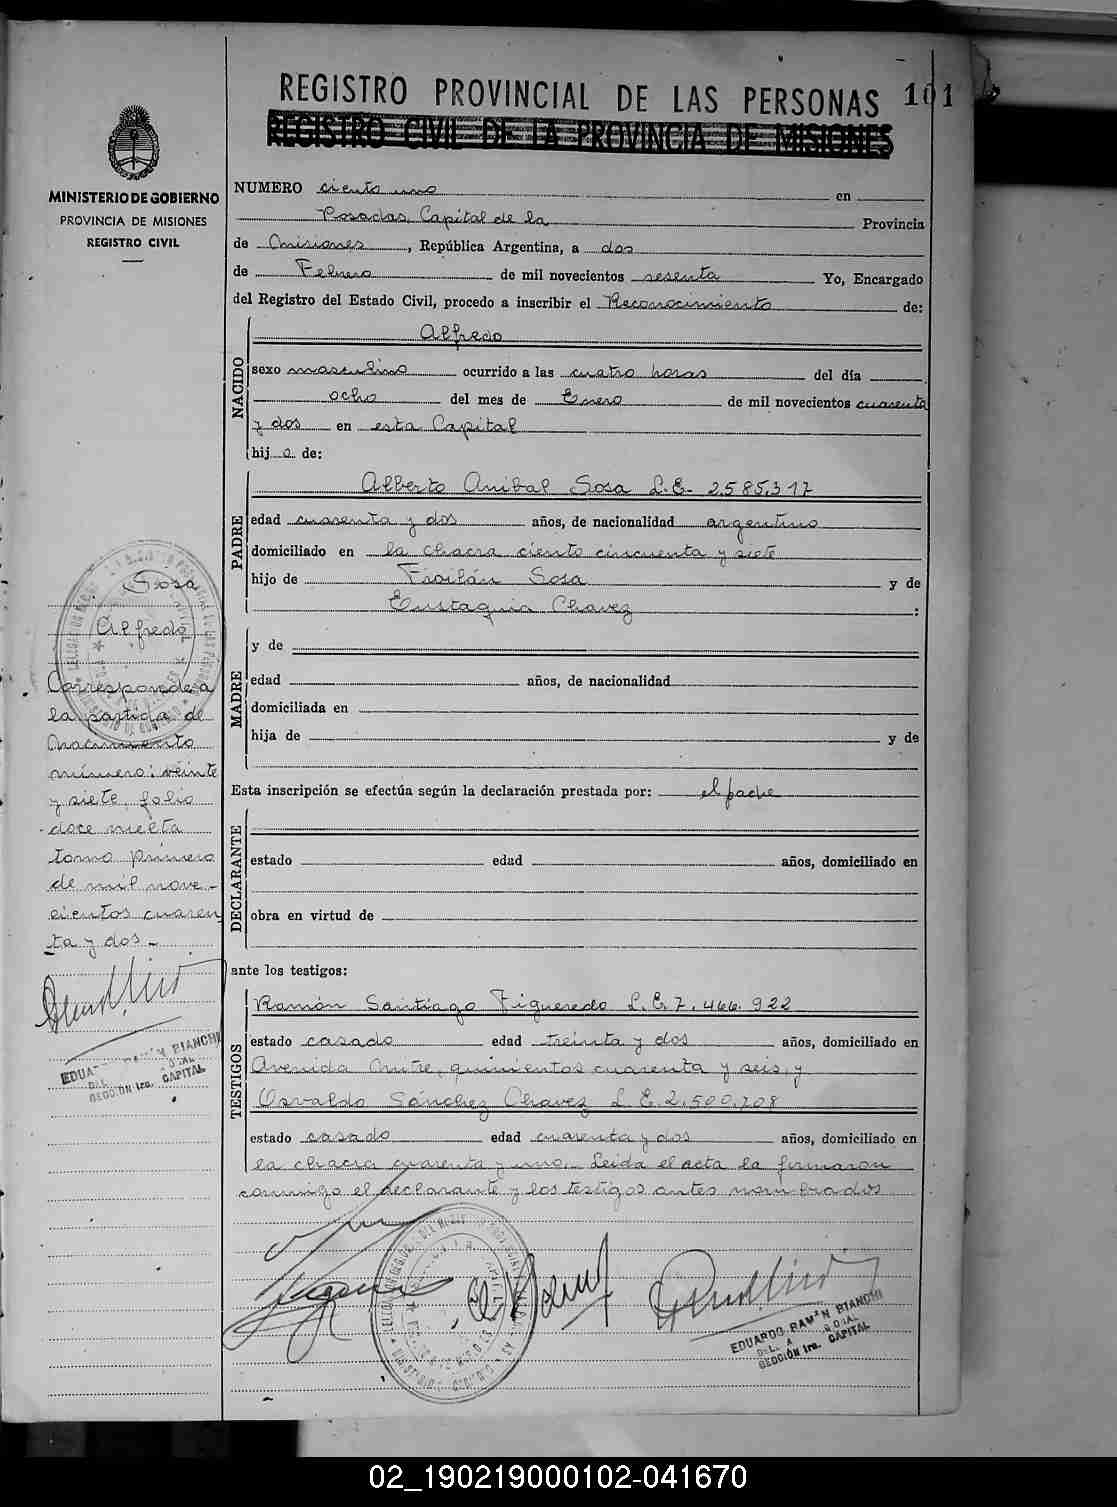 REGISTRO PROVINCIAL DE LAS PERSONAS 101
REGISTRO CIVIL DE LA PROVINCIA DE MISIONES
MINISTERIO DE GOBIERNO
PROVINCIA DE MISIONES
REGISTRO CIVIL
NUMERO ciento uno en
Posadas, Capital de la Provincia
de Misiones, República Argentina, a dos
de Febrero de mil novecientos sesenta Yo, Encargado
del Registro del Estado Civil, procedo a inscribir el Reconocimiento de:
NACIDO
Alfredo
sexo masculino ocurrido a las cuatro horas del día
ocho del mes de Enero de mil novecientos cuarenta
y dos en esta Capital
hijo de:
PADRE
Alberto Anibal Sosa L.E. 2.585.317
edad cuarenta y dos años, de nacionalidad argentino
domiciliado en la chacra ciento cincuenta y siete
hijo de Froilán Sosa y de
Eustaquia Chavez :
MADRE
y de
edad años, de nacionalidad
domiciliada en
hija de y de
Esta inscripción se efectúa según la declaración prestada por: el padre
DECLARANTE
estado edad años, domiciliado en
obra en virtud de
ante los testigos:
TESTIGOS
Ramón Santiago Figueredo L.E. 7.466.922
estado casado edad treinta y dos años, domiciliado en
Avenida Mitre, quinientos cuarenta y seis, y
Osvaldo Sánchez Chavez L.E. 2.500.708
estado casado edad cuarenta y dos años, domiciliado en
la chacra cuarenta y uno. Leída el acta la firmaron
conmigo el declarante y los testigos antes nombrados
Sosa
Alfredo
Corresponde a
la partida de
Nacimiento
número: veinte
y siete, folio
doce vuelta
tomo primero
de mil nove-
cientos cuaren
ta y dos.-
EDUARDO RAMÓN BIANCHI
SECCIÓN 1ra. CAPITAL
EDUARDO RAMÓN BIANCHI
SECCIÓN 1ra. CAPITAL
02_190219000102-041670